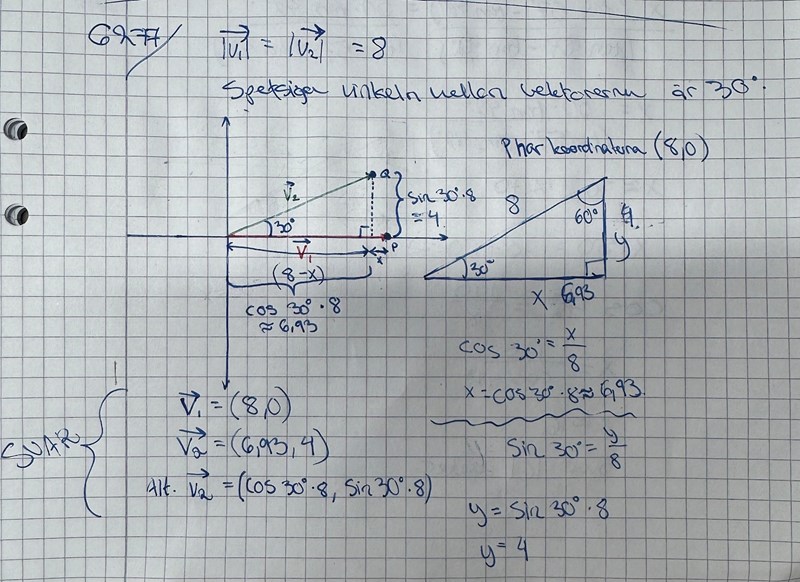 6277
|v₁| = |v₂| = 8
Spetsiga vinkeln mellan vektorerna är 30°.
P har koordinaterna (8,0)
v₂
Q
30°
sin 30°·8
= 4
v₁
x
P
(8-x)
cos 30°·8
≈ 6,93
8
60°
4
y
30°
x 6,93
cos 30° = x/8
x = cos 30°·8 ≈ 6,93
sin 30° = y/8
y = sin 30°·8
y = 4
SVAR
v₁ = (8,0)
v₂ = (6,93, 4)
Alt. v₂ = (cos 30°·8, sin 30°·8)